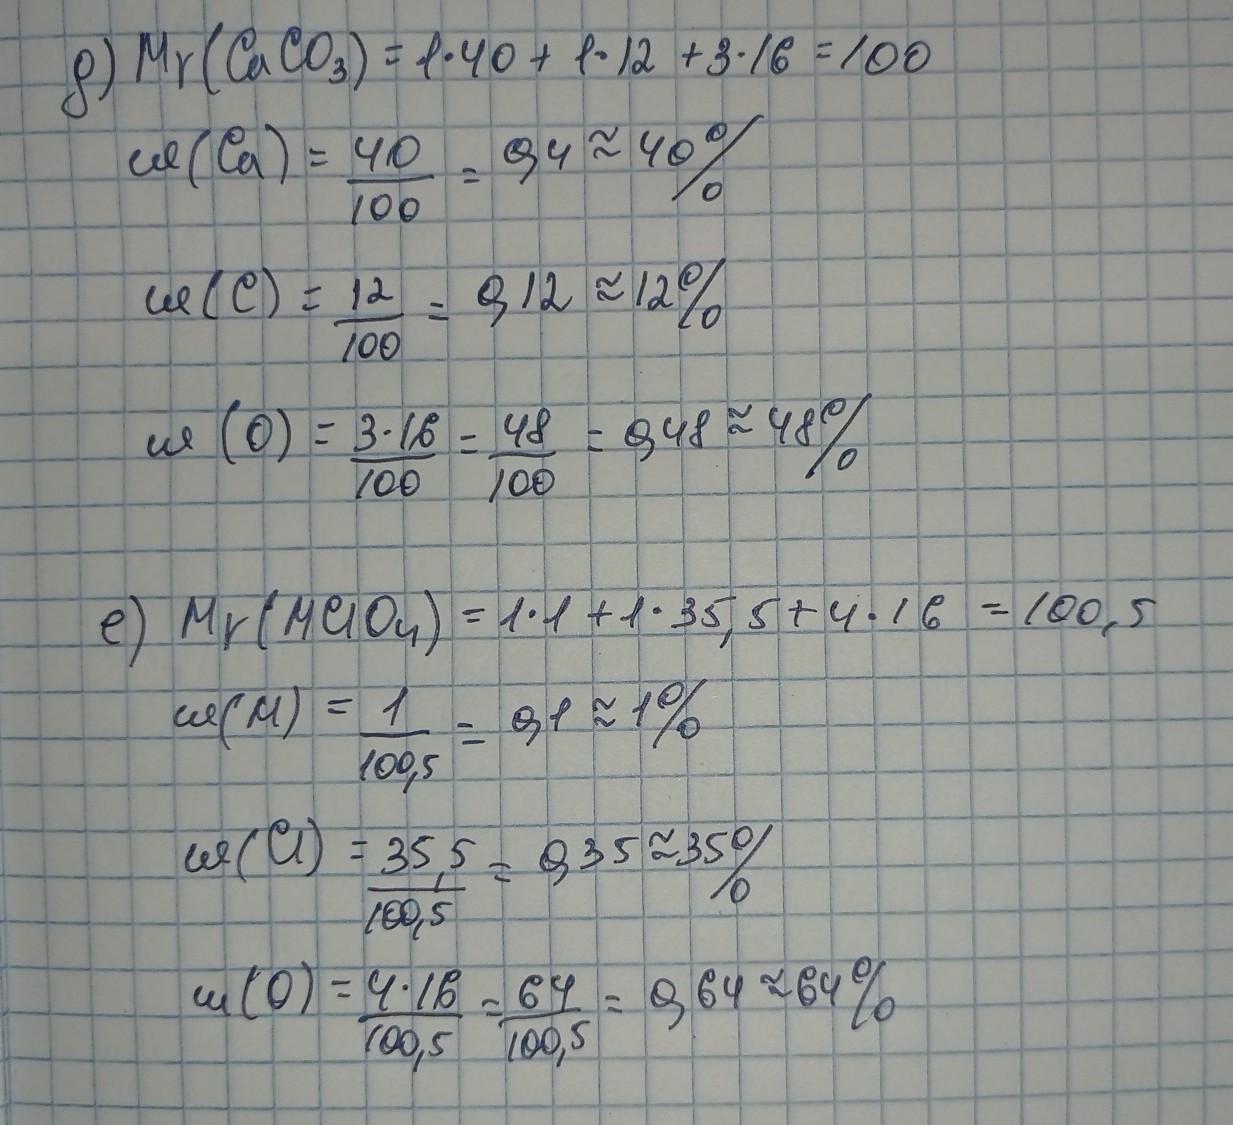 д) Mr(CaCO₃) = 1·40 + 1·12 + 3·16 = 100
ω(Ca) = 40/100 = 0,4 ≈ 40%
ω(C) = 12/100 = 0,12 ≈ 12%
ω(O) = 3·16/100 = 48/100 = 0,48 ≈ 48%
е) Mr(HClO₄) = 1·1 + 1·35,5 + 4·16 = 100,5
ω(H) = 1/100,5 = 0,1 ≈ 1%
ω(Cl) = 35,5/100,5 = 0,35 ≈ 35%
ω(O) = 4·16/100,5 = 64/100,5 = 0,64 ≈ 64%